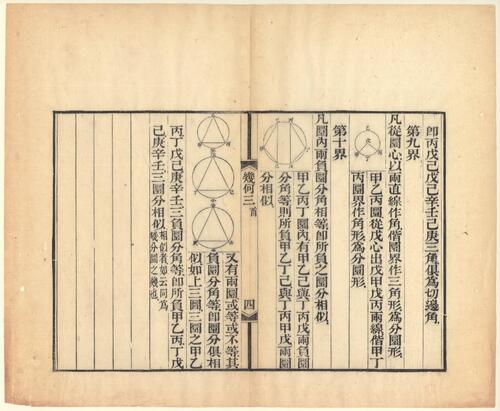 即丙戊己戊己辛壬己庚三角俱爲切邊角
第九界
凡從圜心以兩直線作角偕圜界作三角形爲分圜形
甲乙丙丁圜從戊心出戊甲戊丙兩線偕甲丁
丙圜界作角形爲分圜形
第十界
凡圜內兩負圜分角相等即所負之圜分相似
甲乙丙丁圜內有甲乙己與丁丙戊兩負圜
分角等則所負甲乙丁己與丁丙甲戊兩圜
分相似
幾何三 首
四
又有兩圜或等或不等其
負圜分角等即圜分俱相
似如上三圜三圜之甲乙
丙丁戊己庚辛壬三負圜分角等即所負甲乙丙丁戊
己庚辛壬三圜分相似相似者如云同爲
幾分圜之幾也